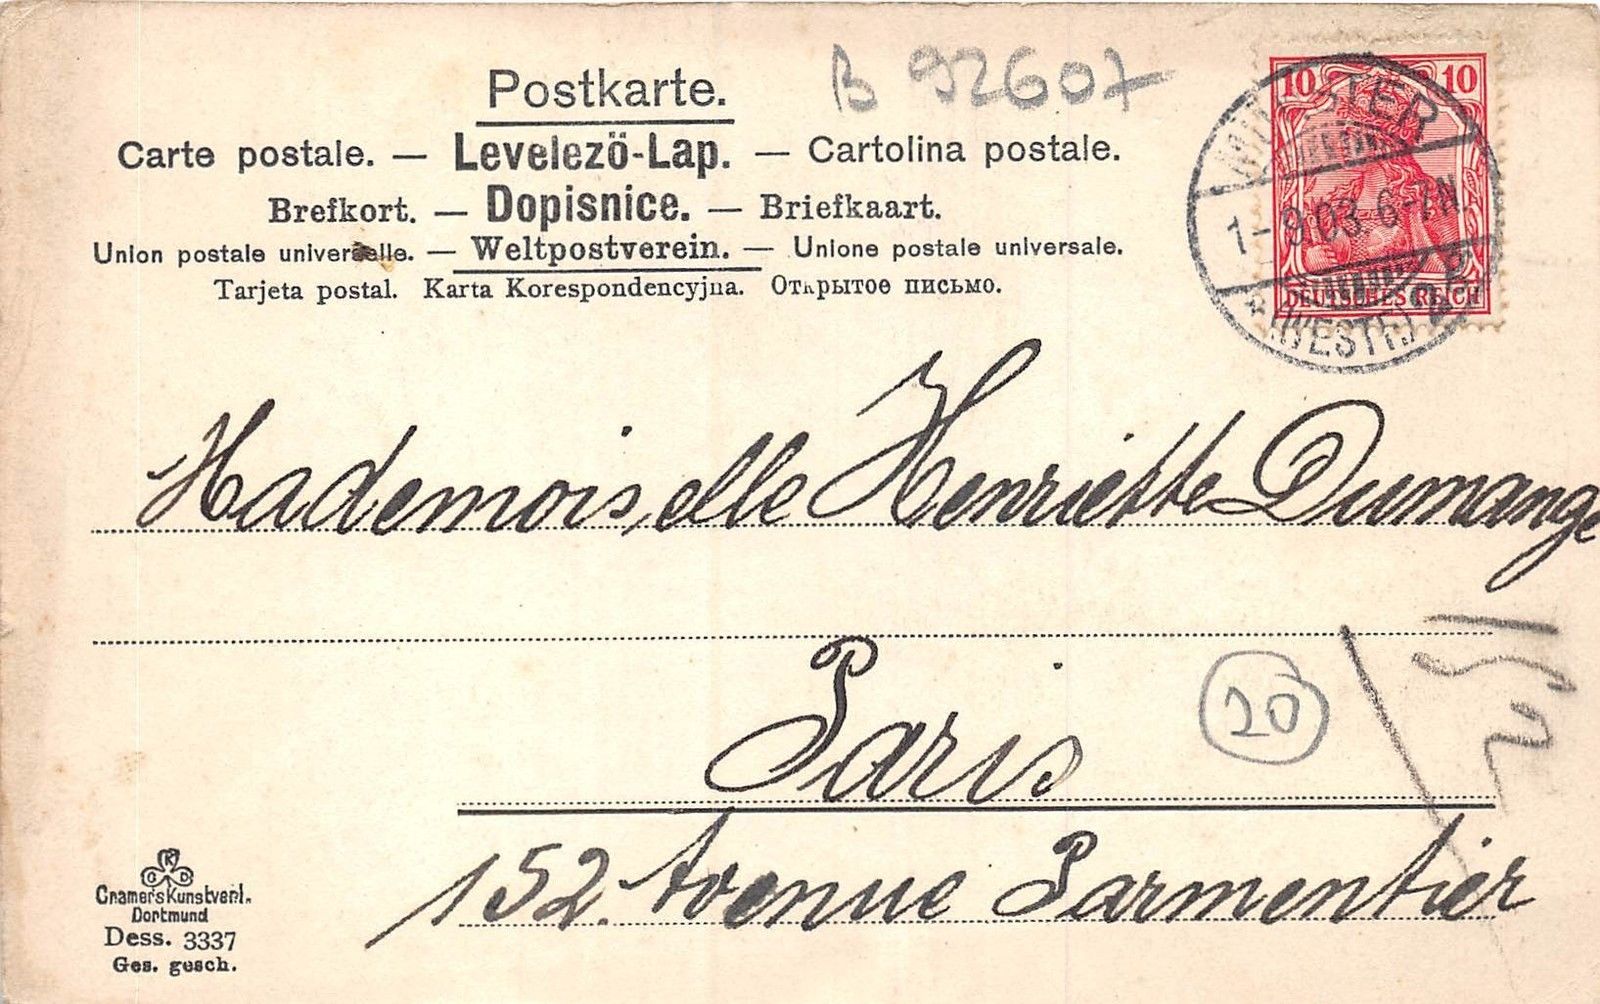 B 92607
Postkarte.
Carte postale. — Levelező-Lap. — Cartolina postale.
Brefkort. — Dopisnice. — Briefkaart.
Union postale universelle. — Weltpostverein. — Unione postale universale.
Tarjeta postal. Karta Korespondencyjna. Открытое письмо.
10 10
DEUTSCHES REICH
MÜNSTER
1-9.03.6-7N.
(WESTF.)
Mademoiselle Henriette Dumange
Paris
20
152. Avenue Parmentier
K
C D
Cramers Kunstverl.
Dortmund
Dess. 3337
Ges. gesch.